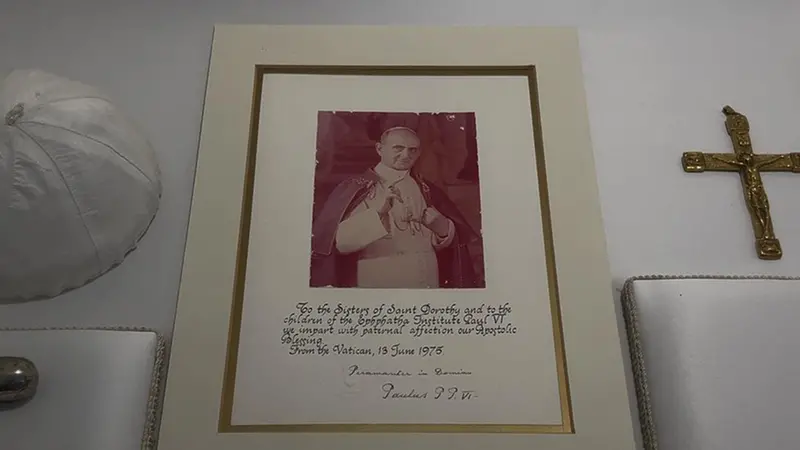 To the Sisters of Saint Dorothy and to the
children of the Ephphatha Institute Paul VI
we impart with paternal affection our Apostolic
Blessing
From the Vatican, 13 June 1975
in Domino
Paulus P P. VI